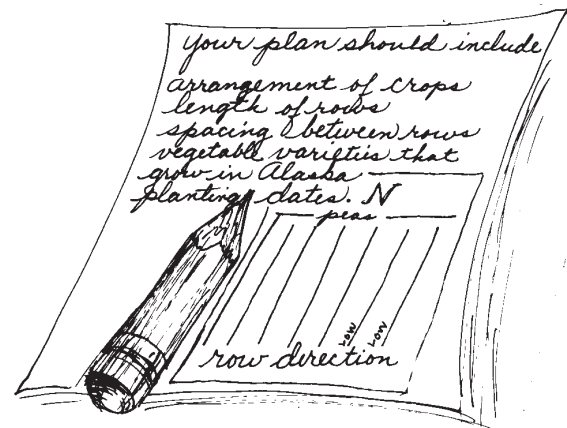 your plan should include
arrangement of crops
length of rows
spacing between rows
vegetable varieties that
grow in Alaska
planting dates. N
peas
row row
row direction